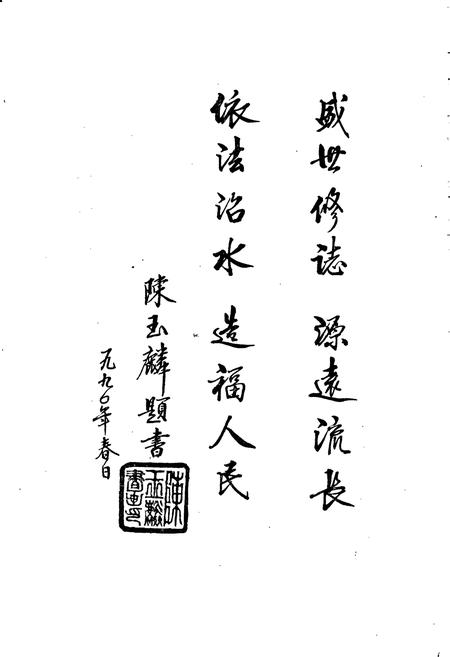 盛世修誌 源遠流長
依法治水 造福人民
陳玉麟題書
一九九〇年春日
陳玉麟書画印